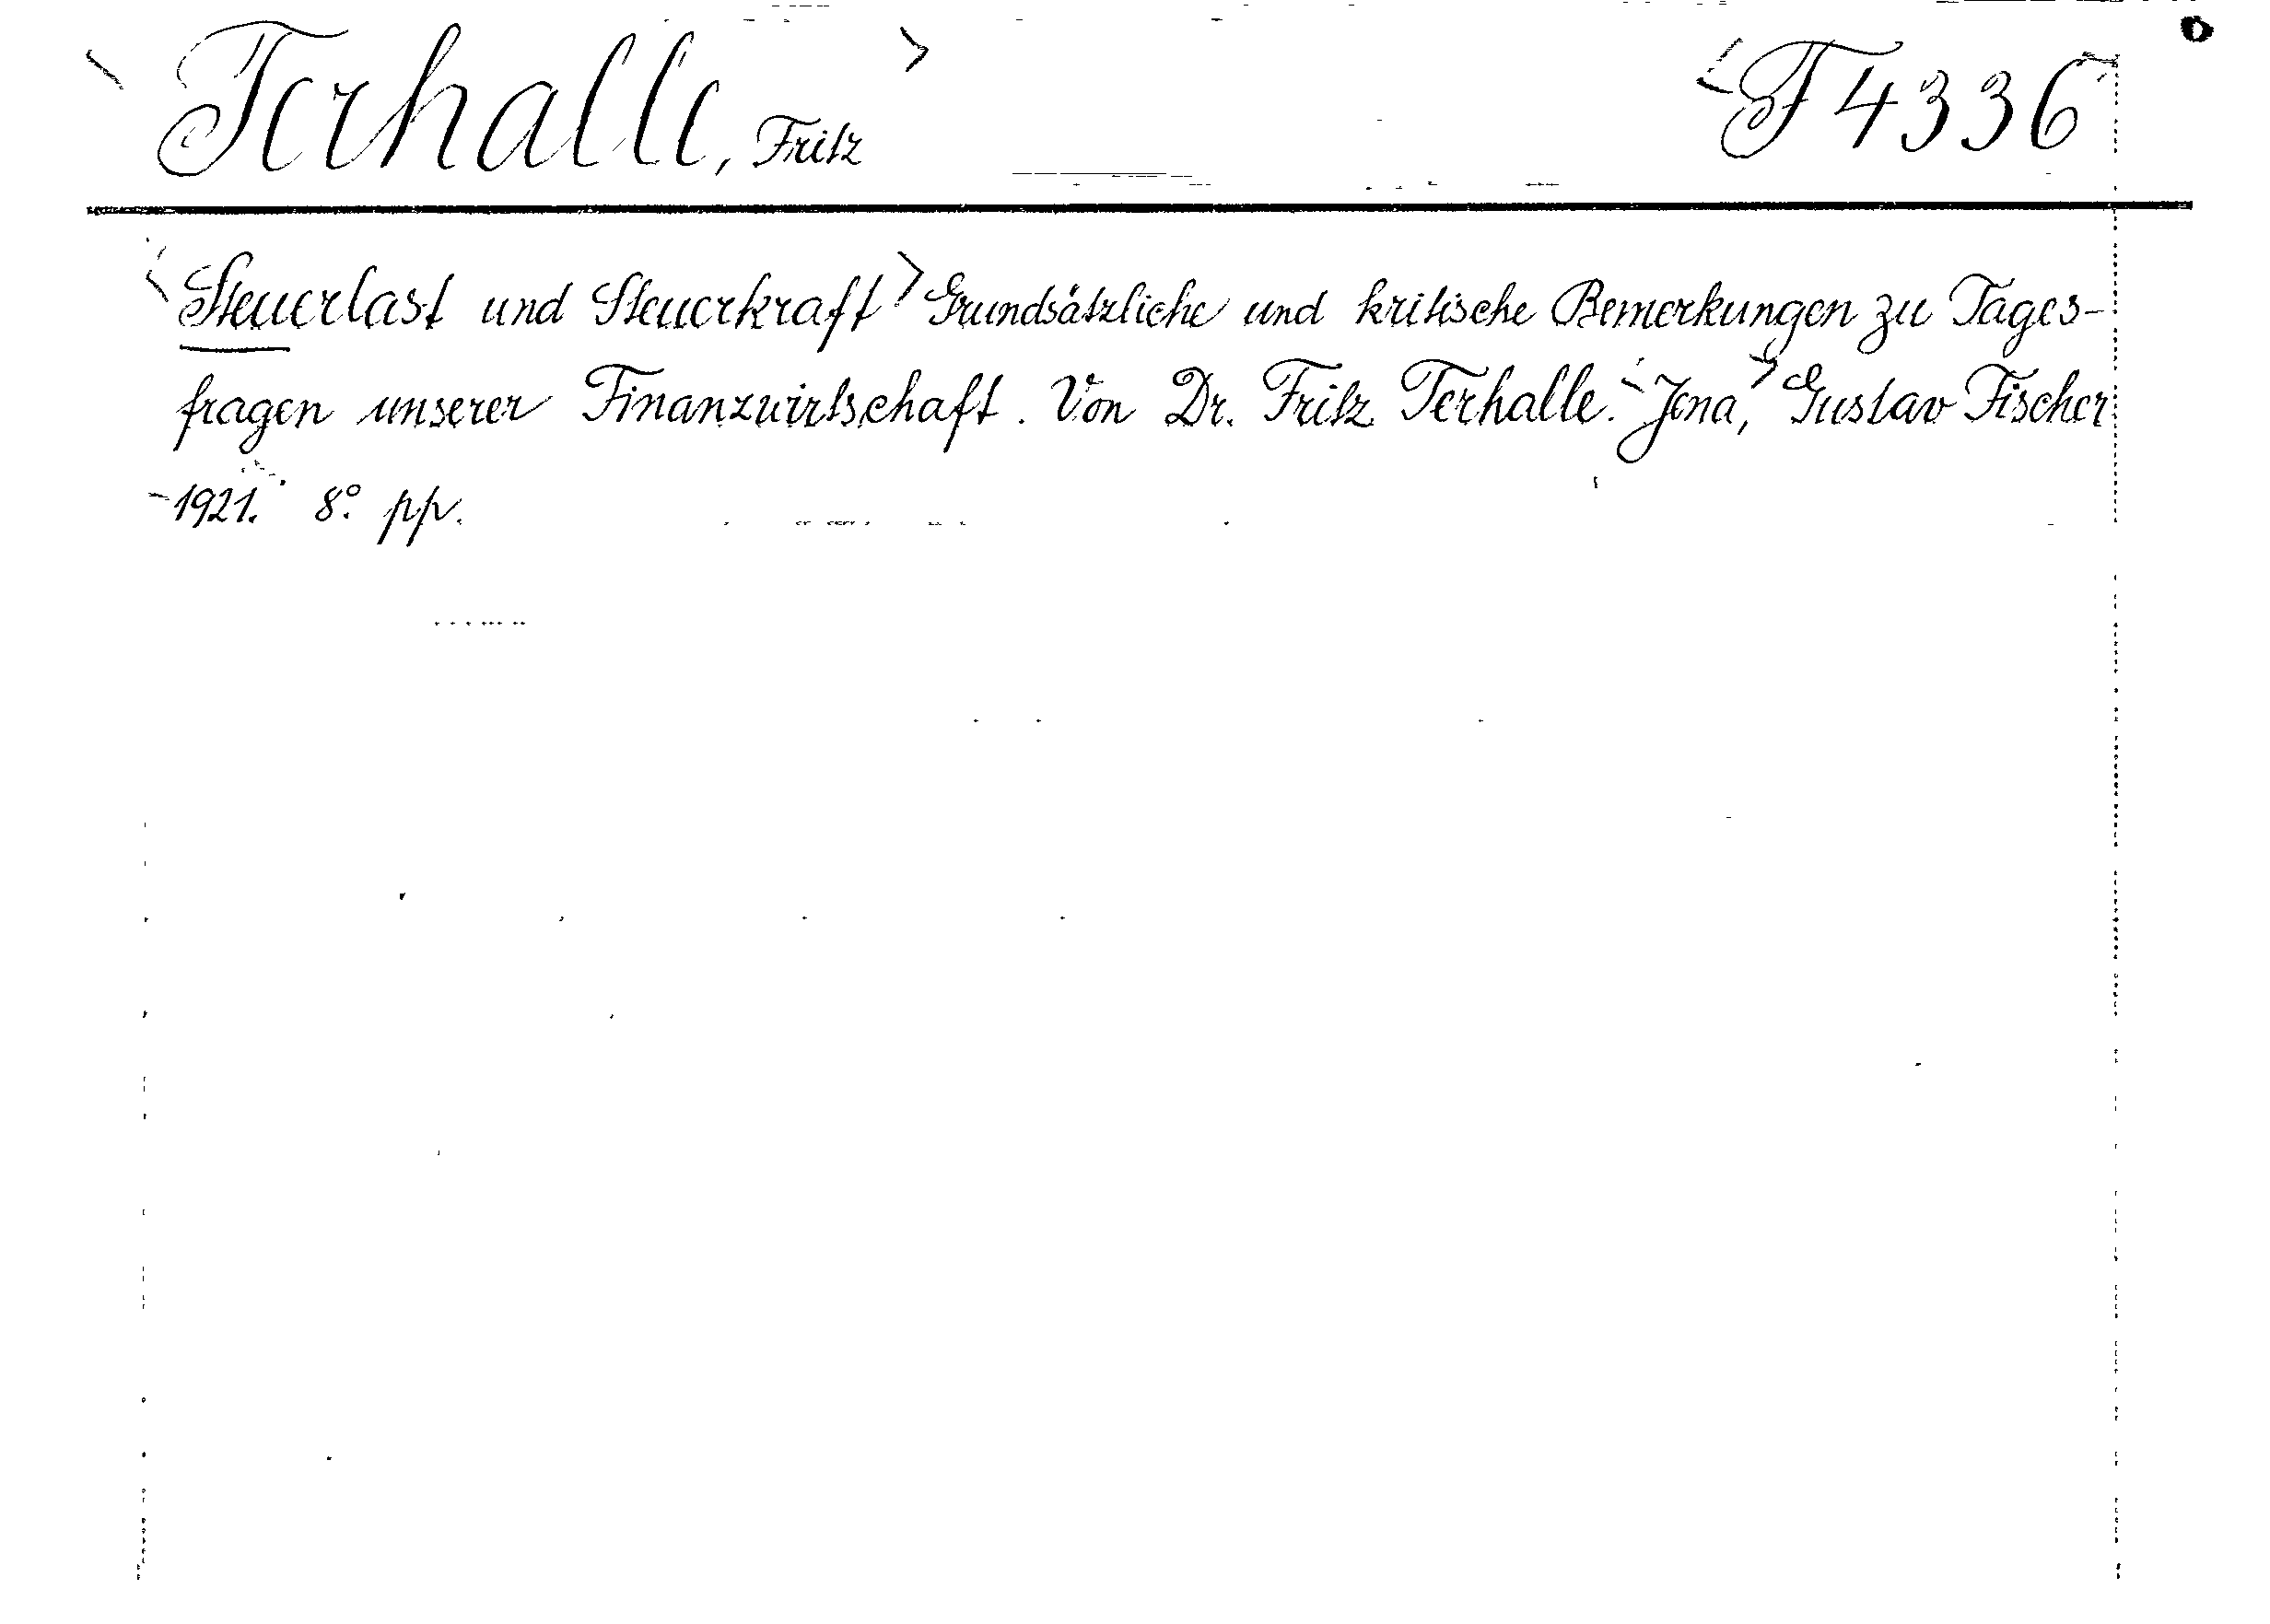 Terhalle, Fritz F 4336
Steuerlast und Steuerkraft Grundsätzliche und kritische Bemerkungen zu Tages-
fragen unserer Finanzwirtschaft. Von Dr. Fritz Terhalle. Jena, Gustav Fischer
1921. 8° pp.